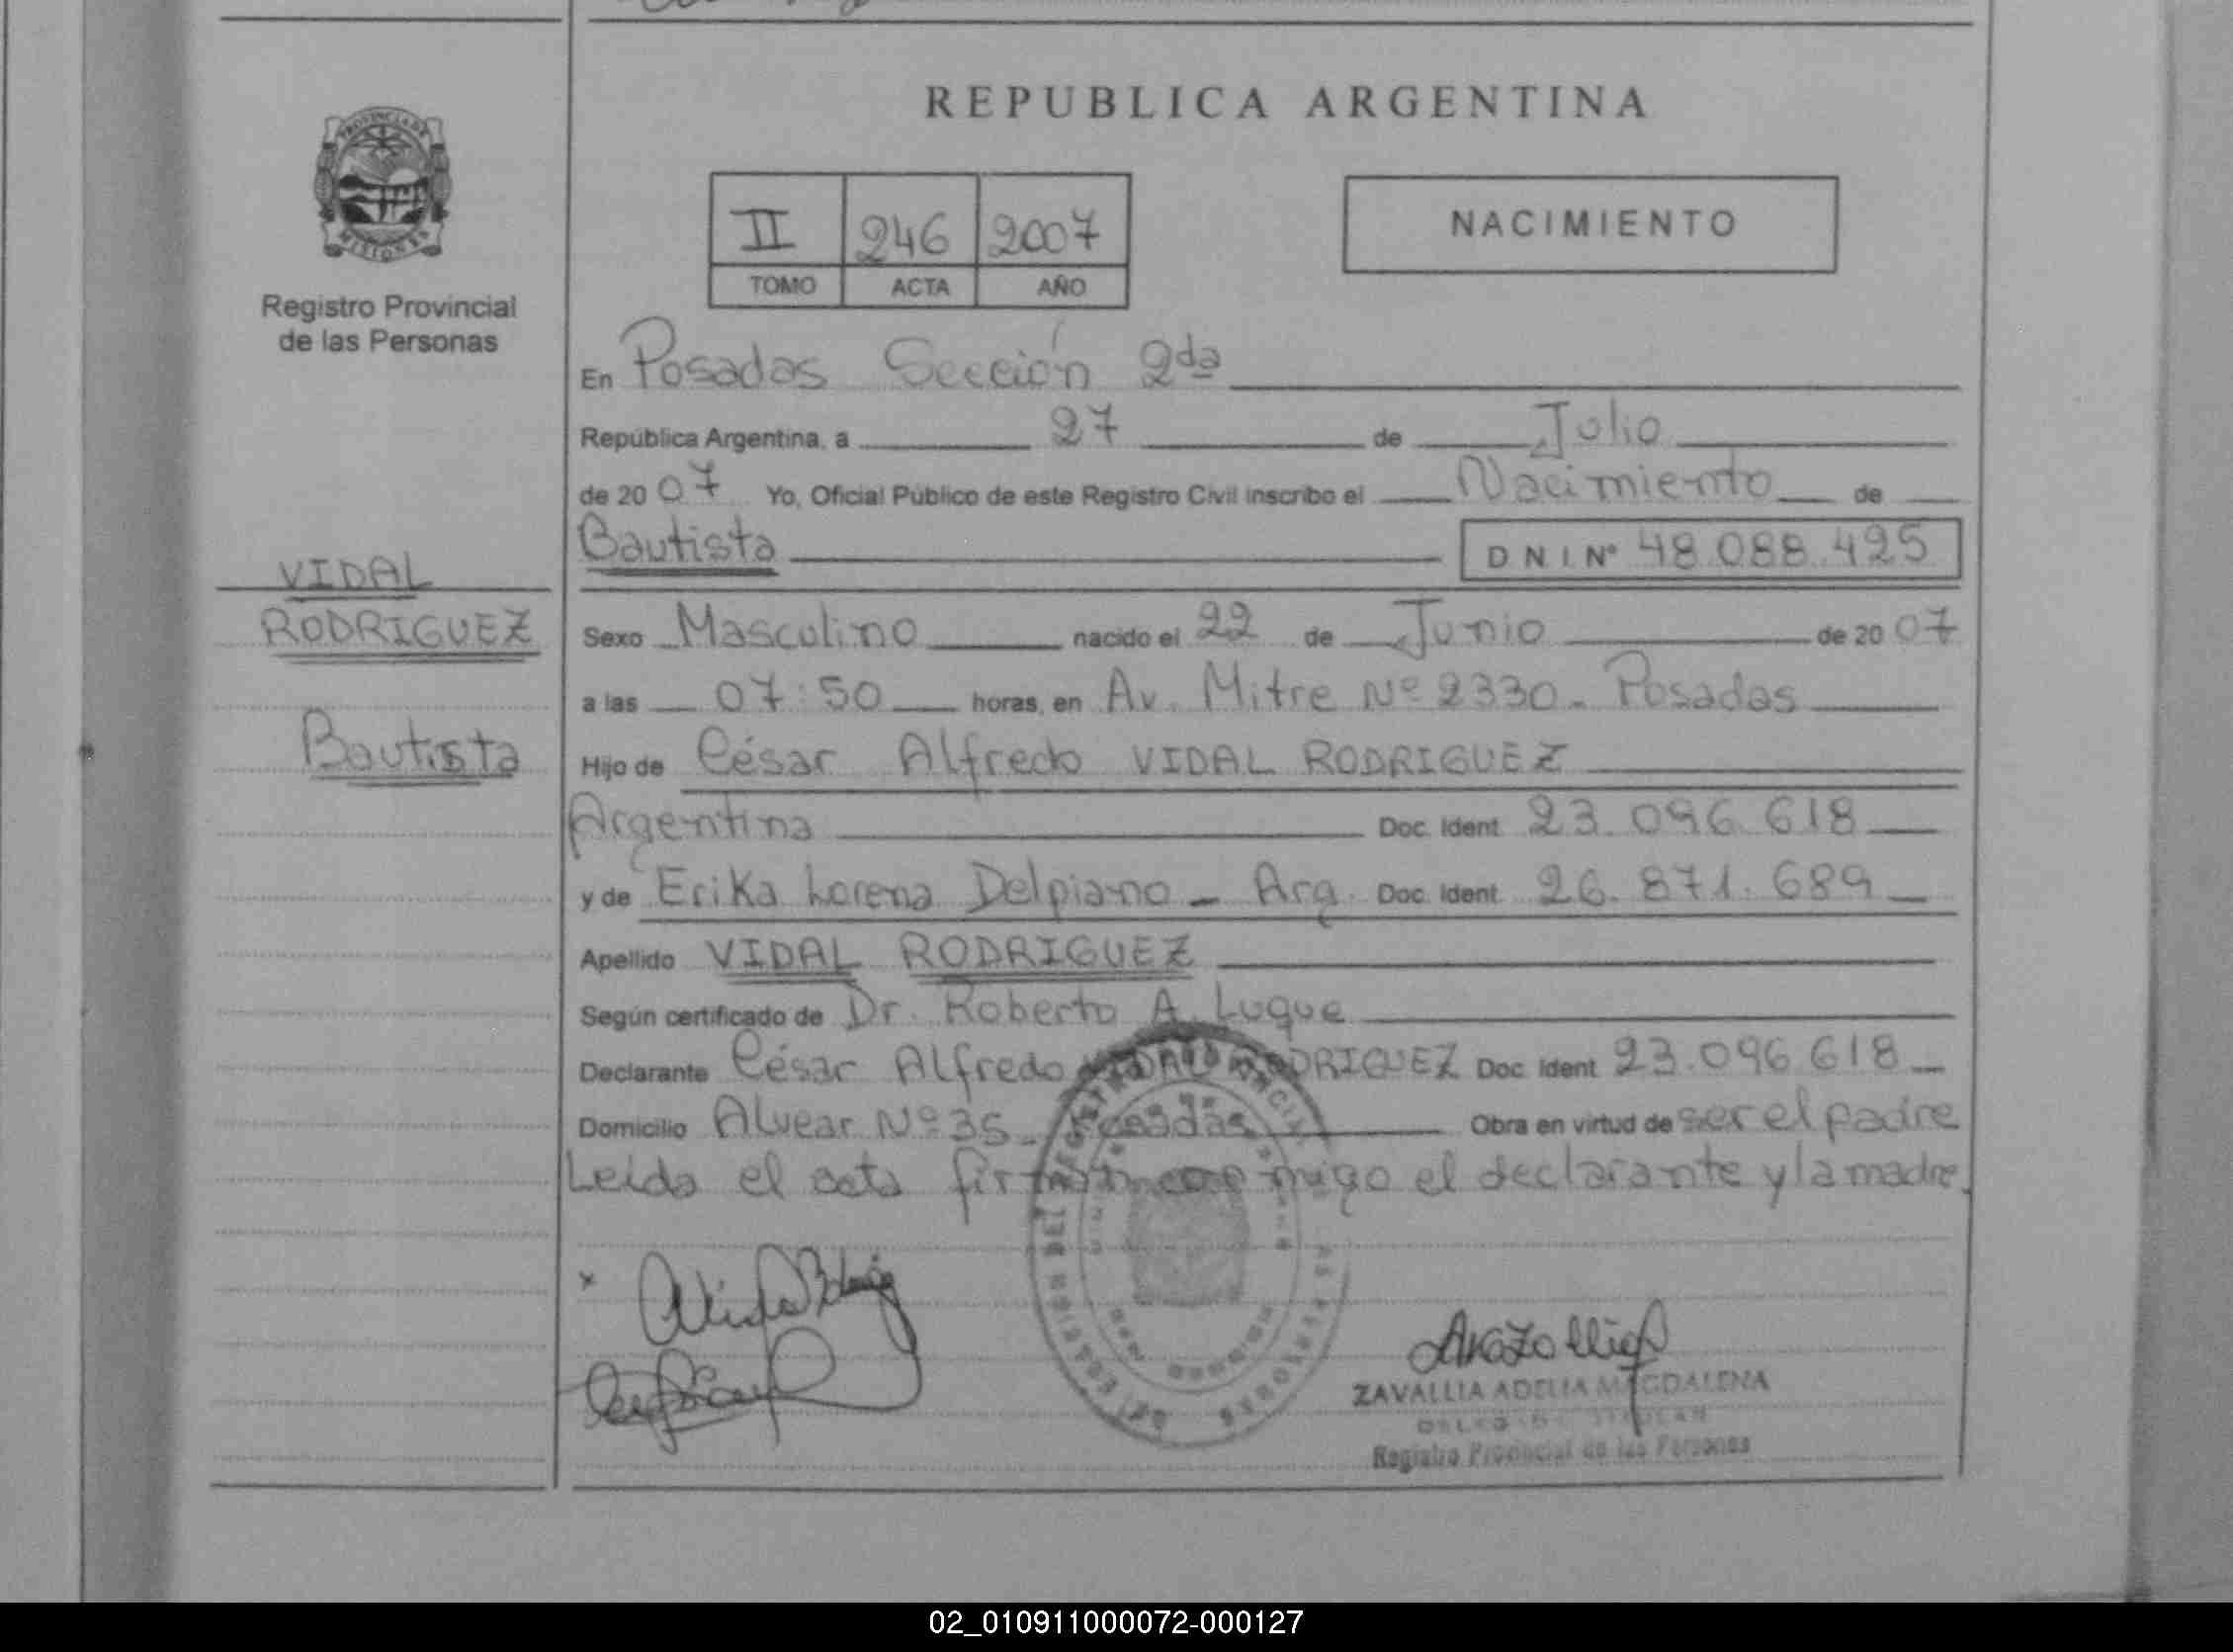 REPUBLICA ARGENTINA
PROVINCIA DE
MISIONES
Registro Provincial
de las Personas
II 246 2007
TOMO ACTA AÑO
NACIMIENTO
En Posadas Sección 2da
República Argentina, a 27 de Julio
de 20 07 Yo, Oficial Público de este Registro Civil inscribo el Nacimiento de
Bautista DNI Nº 48.088.425
VIDAL
RODRIGUEZ
Bautista
Sexo Masculino nacido el 22 de Junio de 20 07
a las 07:50 horas, en Av. Mitre Nº 2330 - Posadas
Hijo de César Alfredo VIDAL RODRIGUEZ
Argentina Doc. Ident 23.096.618
y de Erika Lorena Delpiano - Arg. Doc. Ident 26.871.689
Apellido VIDAL RODRIGUEZ
Según certificado de Dr. Roberto A. Luque
Declarante César Alfredo VIDAL RODRIGUEZ Doc. Ident 23.096.618
Domicilio Alvear Nº 35 - Posadas Obra en virtud de ser el padre
Leida el acta firman conmigo el declarante y la madre.
ZAVALLIA ADELIA MAGDALENA
Registro Provincial de las Personas
02_010911000072-000127